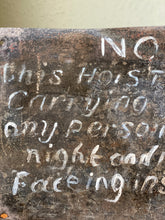 NO
this Hoist
Carrying
any person
night and
Faceing ins